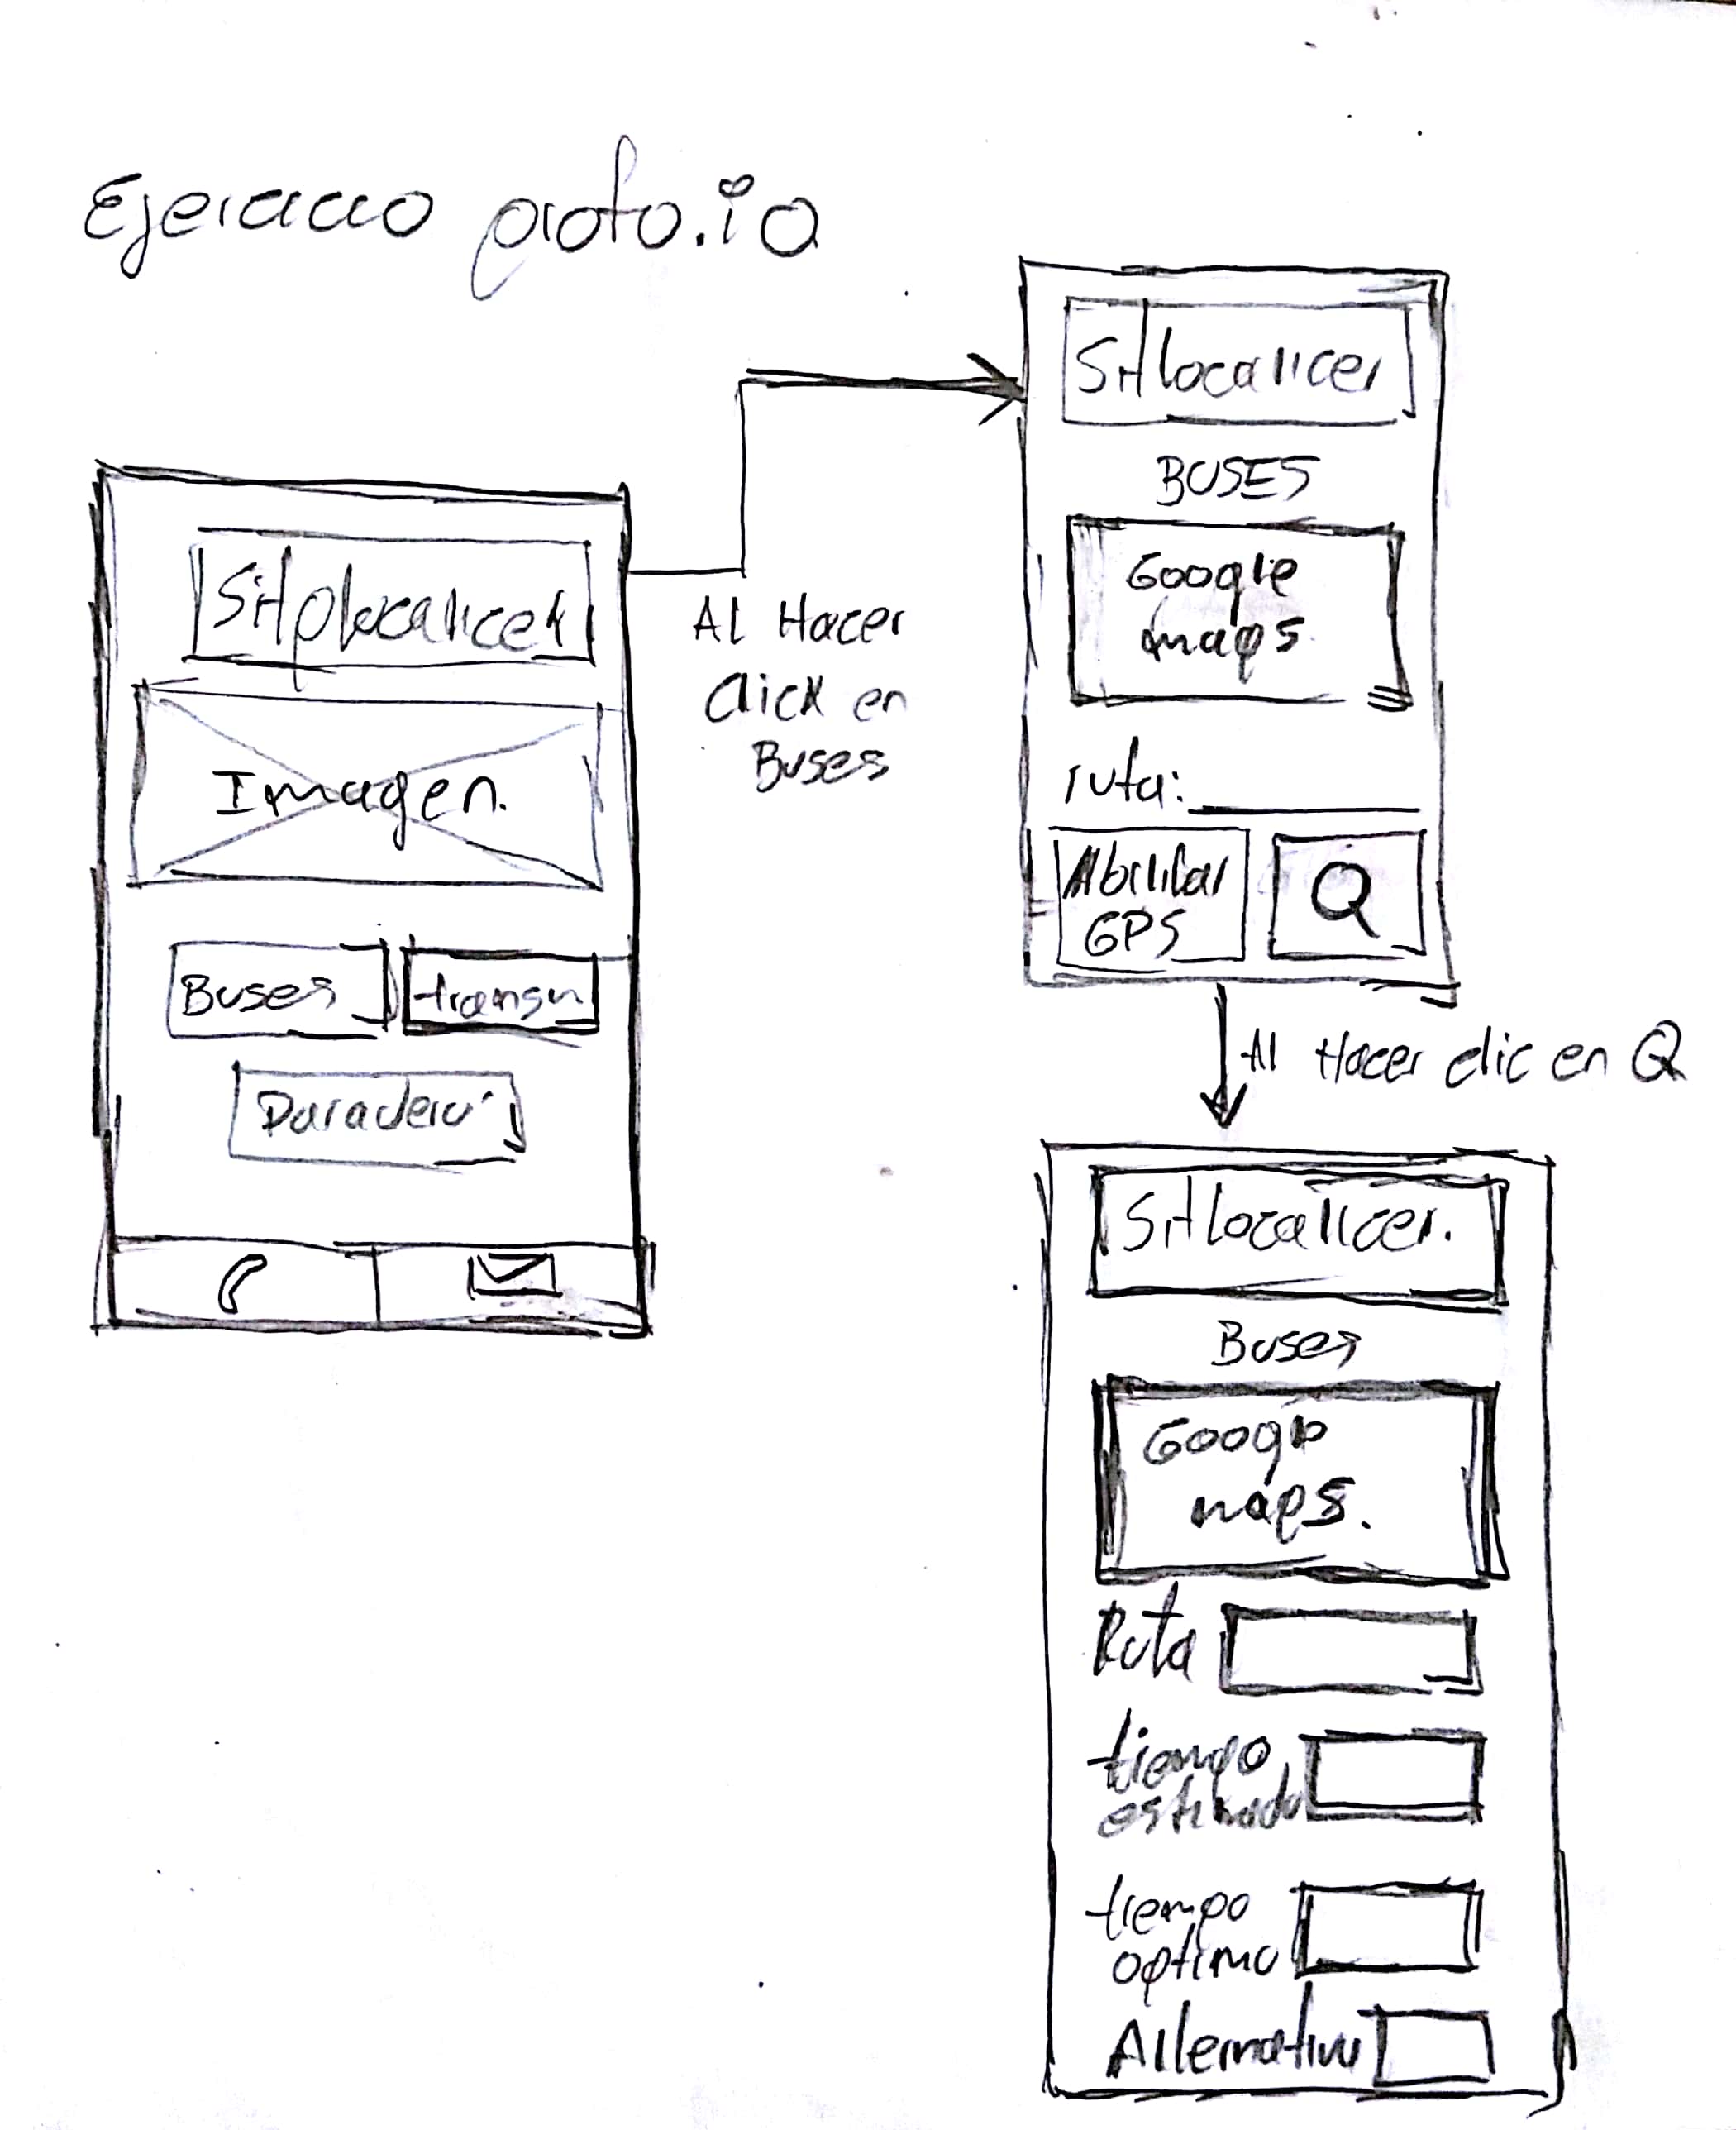 Ejercicio proto.io
Sitplocalicer
Imagen.
Buses
transm
Paradero
Al Hacer
Click en
Buses
Sitlocalicer
BUSES
Google
maps
ruta:
Abilitar
GPS
Q
Al Hacer clic en Q
Sitlocalicer.
Buses
Google
maps.
Ruta
tiempo
estimado
tiempo
optimo
Alternativa